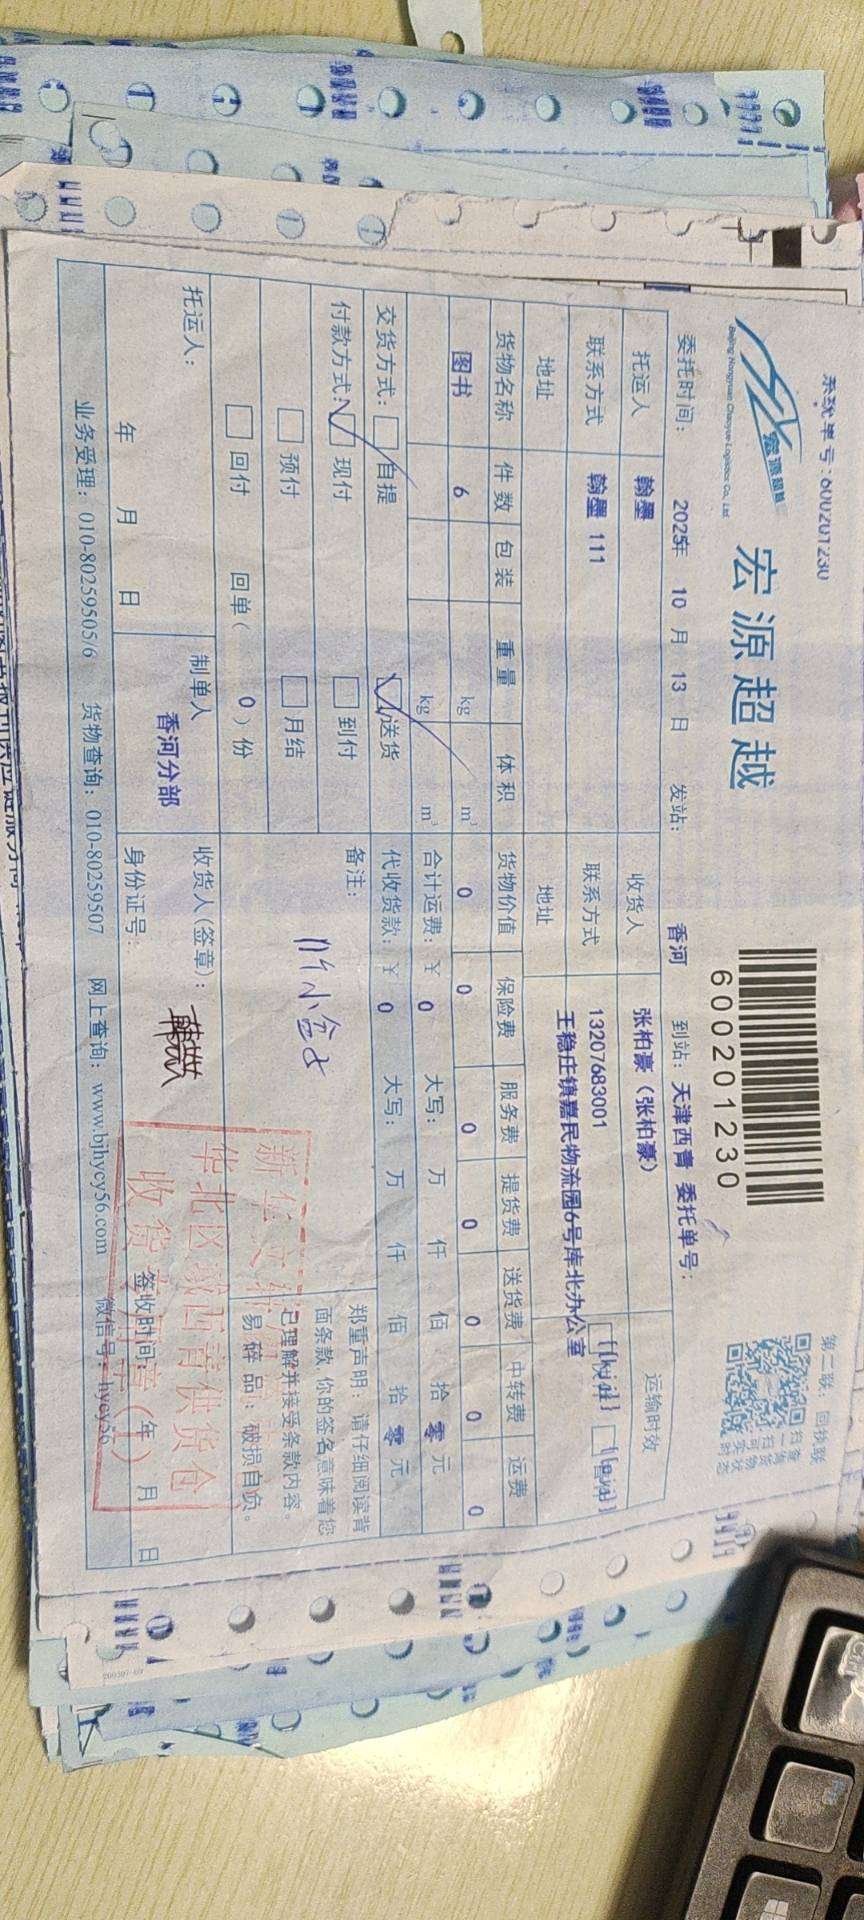 系统单号:600201230
第二联:回执联
宏源超越
Beijing Hongyuan Chaoyue Logistics Co., Ltd
宏源超越
600201230
扫一扫可实时
查货物状态
委托时间: 2025年 10 月 13 日 发站: 香河 到站: 天津西青 委托单号:
托运人 翰墨 收货人 张柏豪(张柏豪) 运输时效
联系方式 翰墨 111 联系方式 13207683001
地址 地址 王稳庄镇嘉民物流园6号库北办公室
货物名称 件数 包装 重量 体积 货物价值 保险费 服务费 提货费 送货费 中转费 运费
图书 6 kg m³ 0 0 0 0 0 0 0
kg m³ 合计运费:¥ 0 大写: 万 仟 佰 拾 零 元
交货方式: 自提 送货 代收货款:¥ 0 大写: 万 仟 佰 拾 零 元
付款方式: 现付 到付 备注:
预付 月结
回付 回单( 0 )份
郑重声明:请仔细阅读背
面条款,你的签名意味着您
已理解并接受条款内容。
易碎品:破损自负。
托运人: 制单人 收货人(签章):
香河分部
年 月 日 身份证号: 签收时间: 年 月 日
华北区域西青供货仓
业务受理: 010-80259505/6 货物查询: 010-80259507 网上查询: www.bjhycy56.com 微信号: hycy56